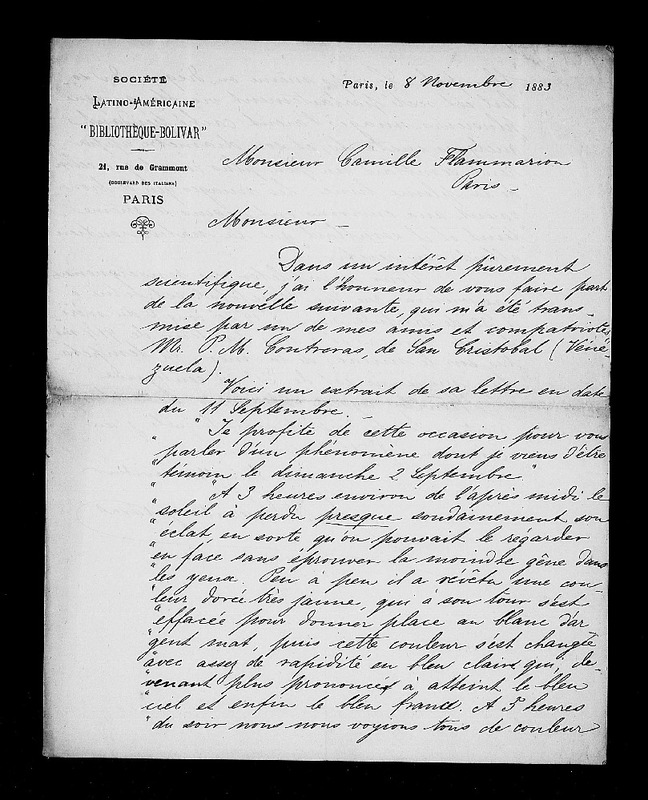 SOCIÉTÉ
LATINO-AMÉRICAINE
"BIBLIOTHÈQUE-BOLIVAR"
21, rue de Grammont
(BOULEVARD DES ITALIENS)
PARIS
Paris, le 8 Novembre 1883
Monsieur Camille Flammarion
Paris –
Monsieur –
Dans un intérêt pûrement
scientifique, j'ai l'honneur de vous faire part
de la nouvelle suivante, qui m'a été trans-
mise par un de mes amis et compatriotes
Mr. P. M. Contreras, de San Cristobal (Véné-
zuela).
Voici un extrait de sa lettre en date
du 11 Septembre. –
" "Je profite de cette occasion pour vous
" parler d'un phénomène dont je viens d'être
" témoin le dimanche 2 Septembre"
" "A 3 heures environ de l'après midi le
" soleil à perdu presque soudainement son
" éclat, en sorte qu'on pouvait le regarder
" en face sans éprouver la moindre gêne dans
" les yeux. Peu à peu il a revêtu une cou-
" leur dorée très jaune, qui à son tour s'est
" effacée pour donner place au blanc d'ar
" gent mat, puis cette couleur s'est changée
" avec assez de rapidité en bleu claire qui, de-
" venant plus prononcé à atteint le bleu
" ciel et enfin le bleu francé. A 5 heures
" du soir nous nous voyions tous de couleur